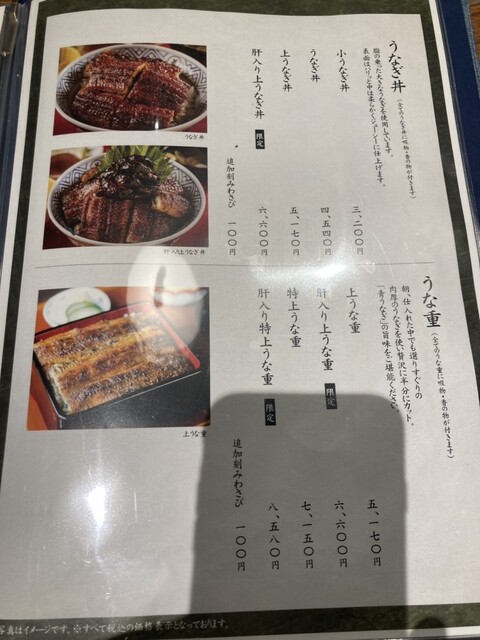 うなぎ丼(全てのうなぎ丼に吸物・香の物が付きます)
脂の乗った大きなうなぎを使用しています。
表面はパリッと中は柔らかくジューシーに仕上げます。
小うなぎ丼 三、二〇〇円
うなぎ丼 四、五四〇円
上うなぎ丼 五、一七〇円
肝入り上うなぎ丼 限定 六、六〇〇円
追加刻みわさび 一〇〇円
うなぎ丼
肝入り上うなぎ丼
うな重(全てのうな重に吸物・香の物が付きます)
朝一仕入れた中でも選りすぐりの
肉厚のうなぎを使い贅沢に半分にカット。
「青うなぎ」の旨味をご堪能ください。
上うな重 五、一七〇円
肝入り上うな重 限定 六、六〇〇円
特上うな重 七、一五〇円
肝入り特上うな重 限定 八、五八〇円
追加刻みわさび 一〇〇円
上うな重
写真はイメージです。※すべて税込の価格表示となっております。